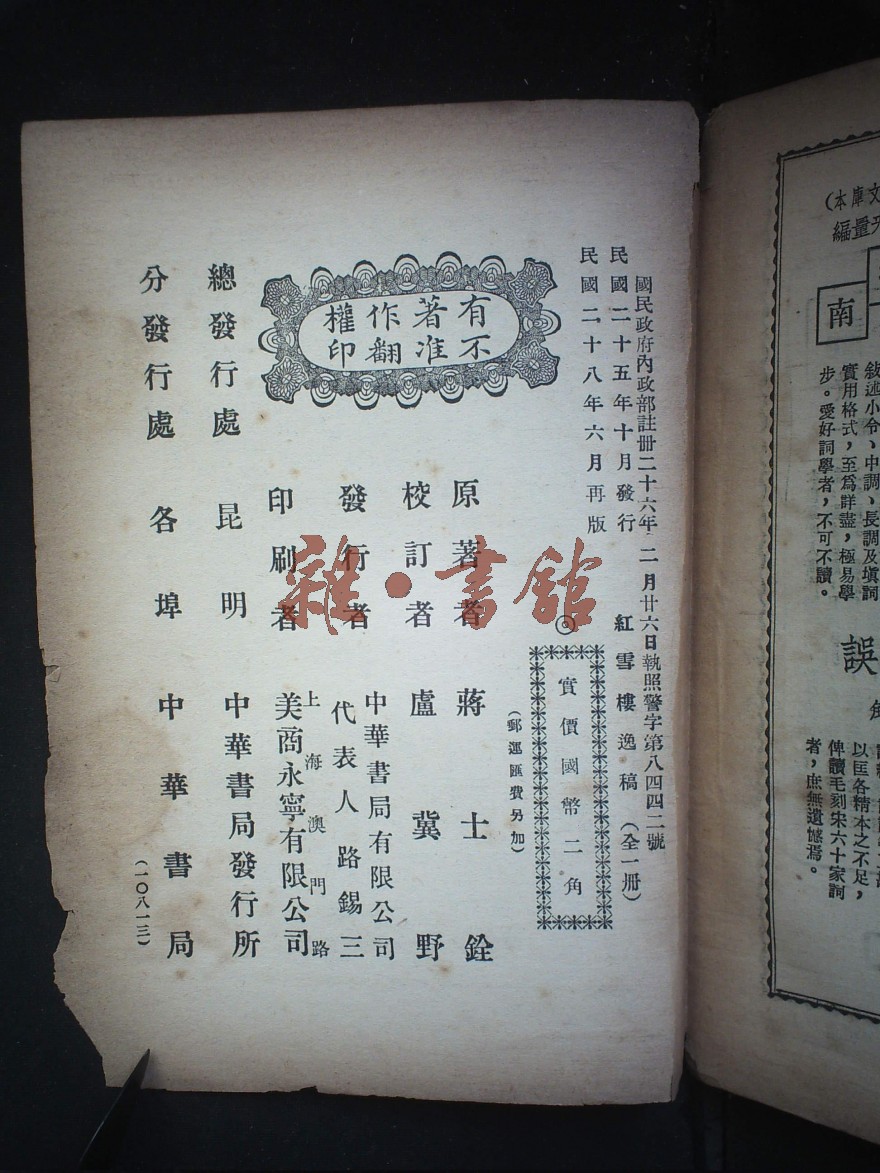 國民政府內政部註冊二十六年二月廿六日執照警字第八四四二號
民國二十五年十月發行
民國二十八年六月再版
紅雪樓逸稿（全一册）
◎實價國幣二角
（郵運匯費另加）
有著作權
不准翻印
原著者 蔣士銓
校訂者 盧冀野
發行者 中華書局有限公司
代表人路錫三
印刷者 上海澳門路
美商永寧有限公司
總發行處 昆明 中華書局發行所
分發行處 各埠 中華書局
（一〇八一三）
雜·書館
文庫本）
編
南
敍述小令、中調、長調及塡詞
實用格式，至爲詳盡，極易學
步。愛好詞學者，不可不讀。
誤
以匡各精本之不足，
俾讀毛刻宋六十家詞
者，庶無遺憾焉。